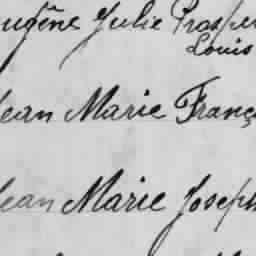 Eugène Julie Prosper
Louis
Jean Marie Franç
Jean Marie Joseph